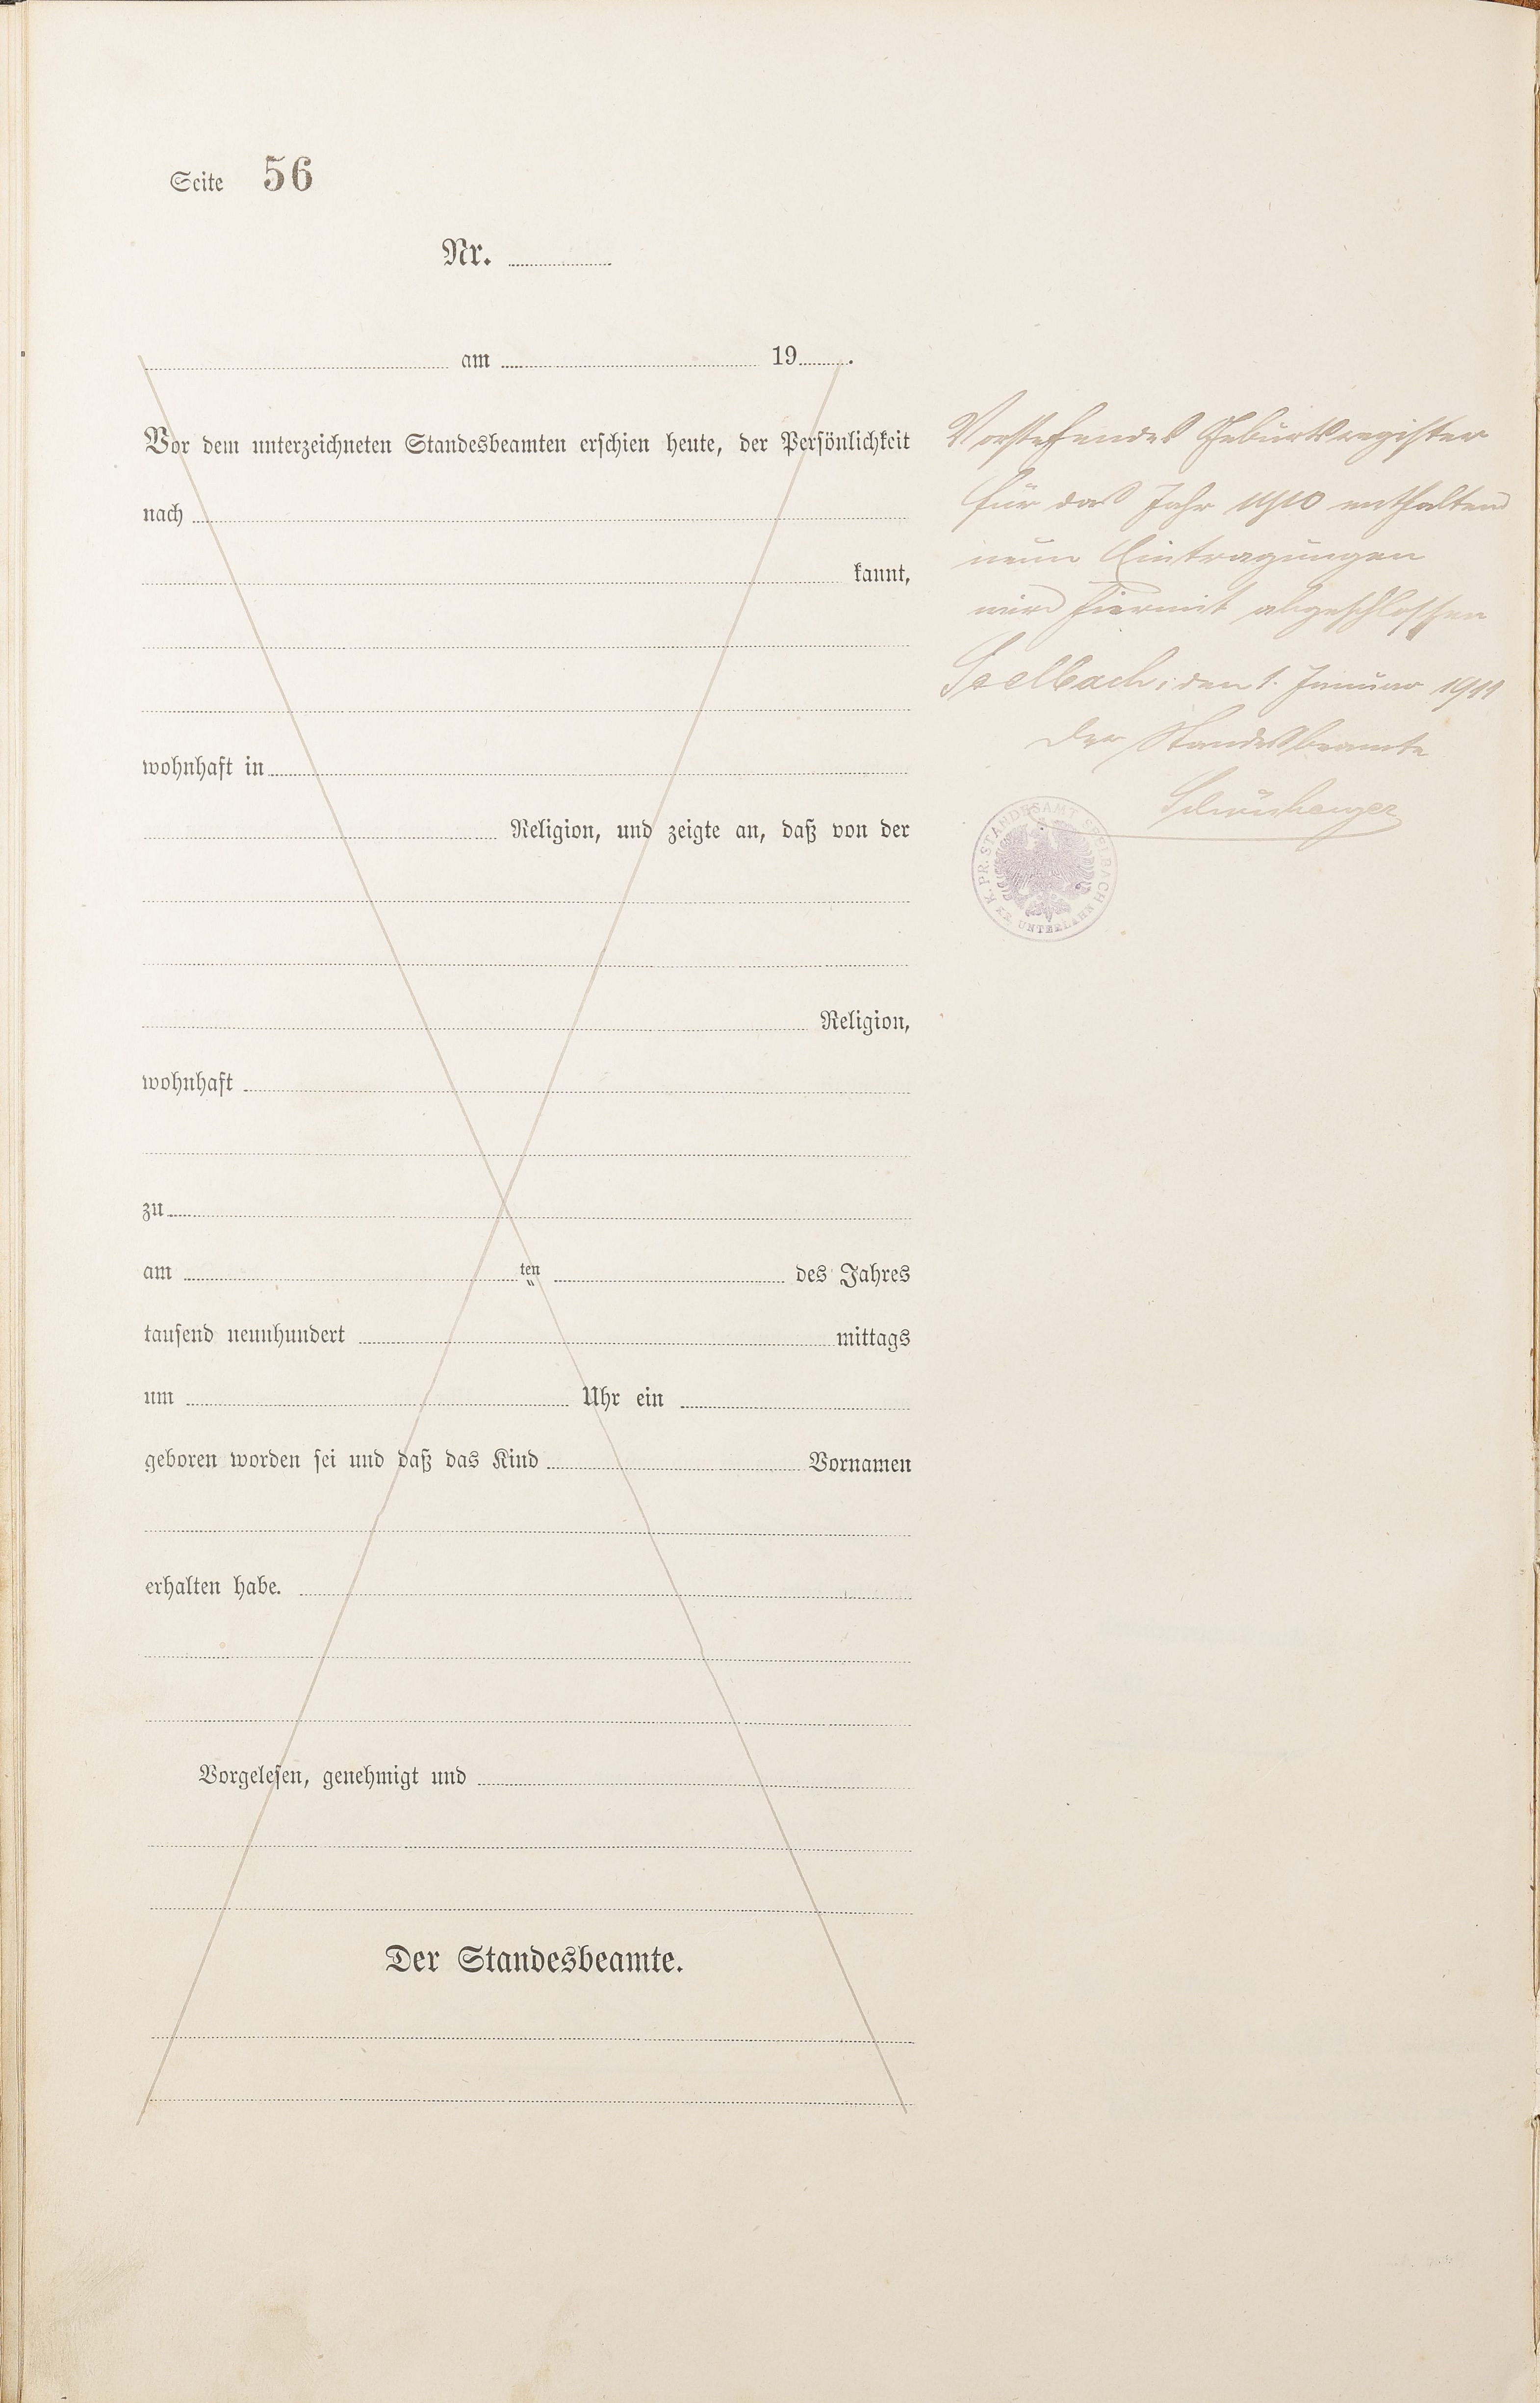 Seite 56
Nr.
am 19 .
Vor dem unterzeichneten Standesbeamten erschien heute, der Persönlichkeit
nach
kannt,
wohnhaft in
Religion, und zeigte an, daß von der
Religion,
wohnhaft
zu
am ten des Jahres
tausend neunhundert mittags
um Uhr ein
geboren worden sei und daß das Kind Vornamen
erhalten habe.
Vorgelesen, genehmigt und
Der Standesbeamte.
Vorstehendes Geburtsregister
für das Jahr 1910 enthaltend
neun Eintragungen
wird hiermit abgeschlossen
Seelbach, den 1. Januar 1911
Der Standesbeamte
K. PR. STANDESAMT SEELBACH
KR. UNTERLAHN